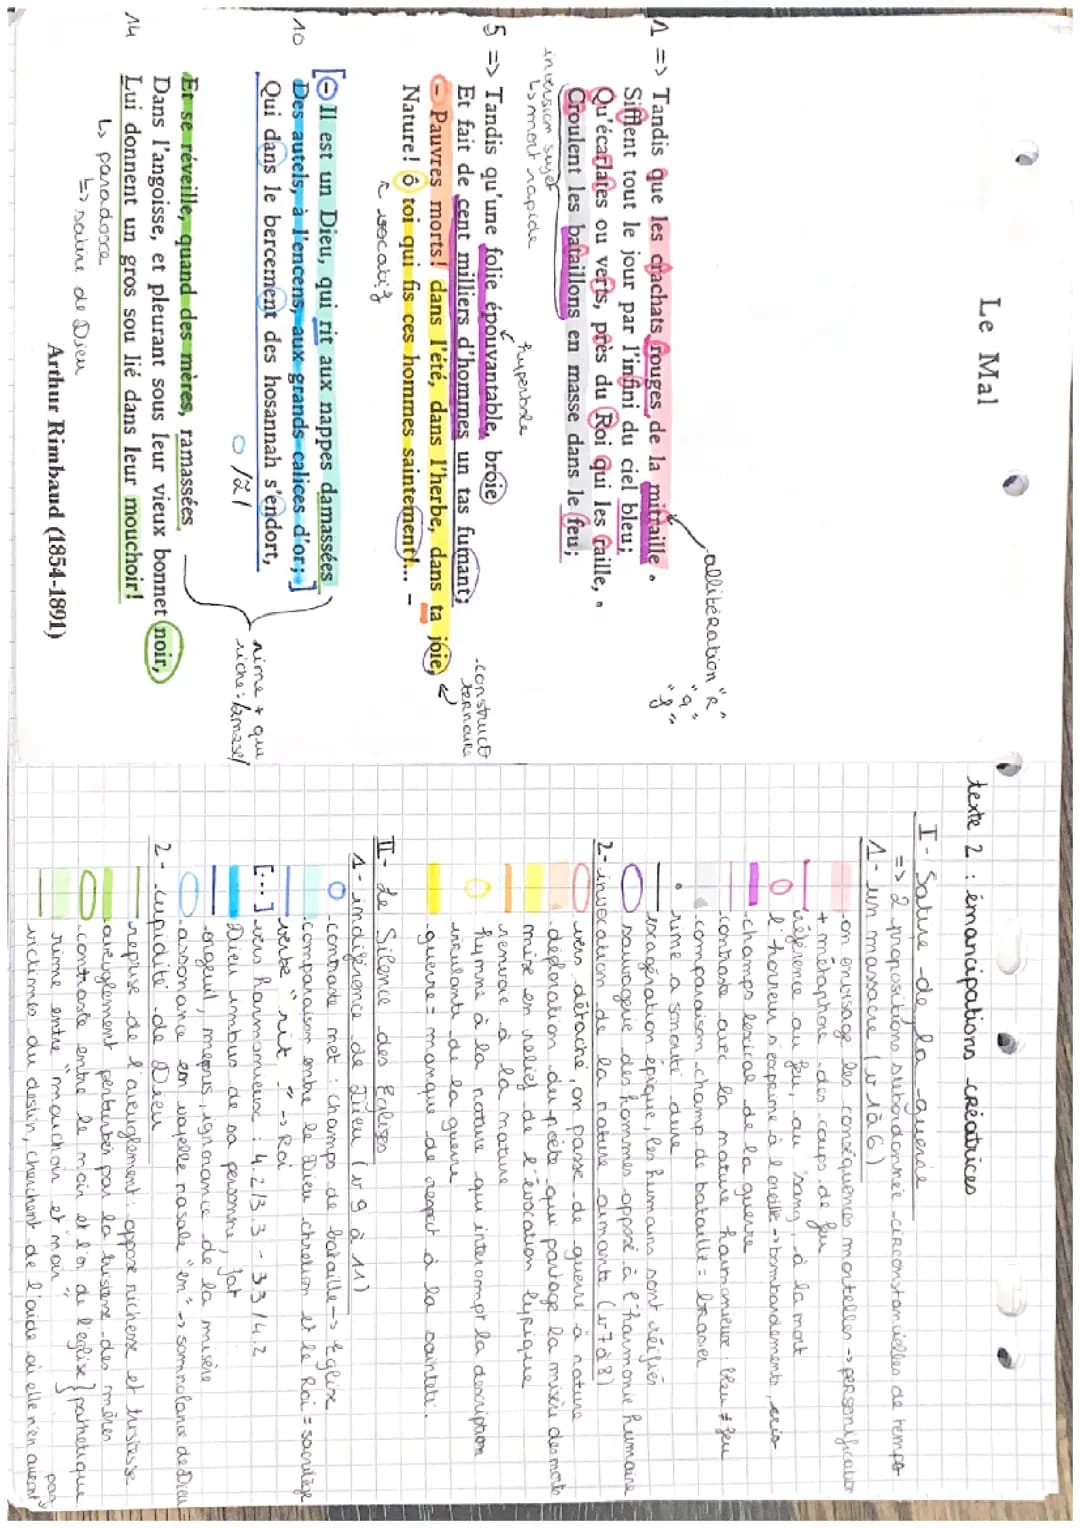 Le Mal
1 => Tandis que les crachats rouges de la mitraille
Sifflent tout le jour par l'infini du ciel bleu;
Qu'écarlates ou verts, près du Roi qui les raille,
Croulent les bataillons en masse dans le feu;
allitération "R"
"q"
"f"
inversion sujet
↳ mort rapide
hyperbole
5 => Tandis qu'une folie épouvantable, broie
Et fait de cent milliers d'hommes un tas fumant;
- Pauvres morts! dans l'été, dans l'herbe, dans ta joie,
Nature! ô toi qui fis ces hommes saintement!... -
vocatif
- construct°
ternaire
[- Il est un Dieu, qui rit aux nappes damassées
10 Des autels, à l'encens, aux grands calices d'or; ]
Qui dans le bercement des hosannah s'endort,
○ /ã/
rime + que
riche: /amase/
Et se réveille, quand des mères, ramassées
Dans l'angoisse, et pleurant sous leur vieux bonnet noir,
14 Lui donnent un gros sou lié dans leur mouchoir!
↳ paradoxe
↳> satire de Dieu
Arthur Rimbaud (1854-1891)
texte 2 : émancipations créatrices
I - Satire de la guerre
=> 2 propositions subordonnée circonstancielles de temps
1 - un massacre (v 1 à 6)
- on envisage les conséquences mortelles -> personnification
+ métaphore des coups de feu
référence au feu, au sang, à la mort
l'horreur s'exprime à l'oreille -> bombardements, cris
- champs lexical de la guerre
contraste avec la nature harmonieux : bleu ≠ feu
- comparaison champ de bataille = brasier
rime a sonorité dure
exagération épique, les humains sont réifiés
sauvagerie des hommes opposé à l'harmonie humaine
2 - invocation de la nature aimante (v 7 à 8)
- vers détaché, on passe de guerre à nature
- déploration du poète qui partage la misère des morts
mise en relief de l'évocation lyrique
renvoie à la nature
hymne à la nature qui interrompt la description
virulante de la guerre
- guerre = manque de respect à la sainteté.
II - Le Silence des Eglises
1 - indifférence de Dieu (v 9 à 11)
- contraste net : champs de bataille -> Eglise
- comparaison entre le Dieu chrétien et le Roi = sacrilège
verbe "rit" -> Roi
[...] - vers harmonieux : 4.2/3.3 - 3.3/4.2
Dieu imbus de sa personne, fat
- orgueil, mépris, ignorance de la misère
- assonance en voyelle nasale "en" -> somnolance de Dieu
2 - cupidité de Dieu
reprise de l'aveuglement : oppose richesse et tristesse
- aveuglement perturber par la tristesse des mères
- contraste entre le noir et l'or de l'église } pathétique
rime entre "mouchoir et noir"
victimes du destin, cherchent de l'aide où elle n'en auront pas